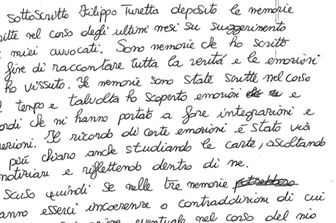 Sottoscritto Filippo Turetta deposito le memorie
nel corso degli ultimi mesi su suggerimento
miei avvocati. Sono memorie che ho scritto
fine di raccontare tutta la verità e le emozioni
ho vissuto. Le memorie sono state scritte nel corso
tempo e talvolta ho scoperto emozioni e
che mi hanno portato a fare integrazioni e
Il ricordo di certe emozioni è stato via
più chiaro anche studiando le carte, ascoltando
notiziari e riflettendo dentro di me.
scuso quindi se nelle tre memorie
esserci incoerenze o contraddizioni di cui
eventuali nel corso del mio